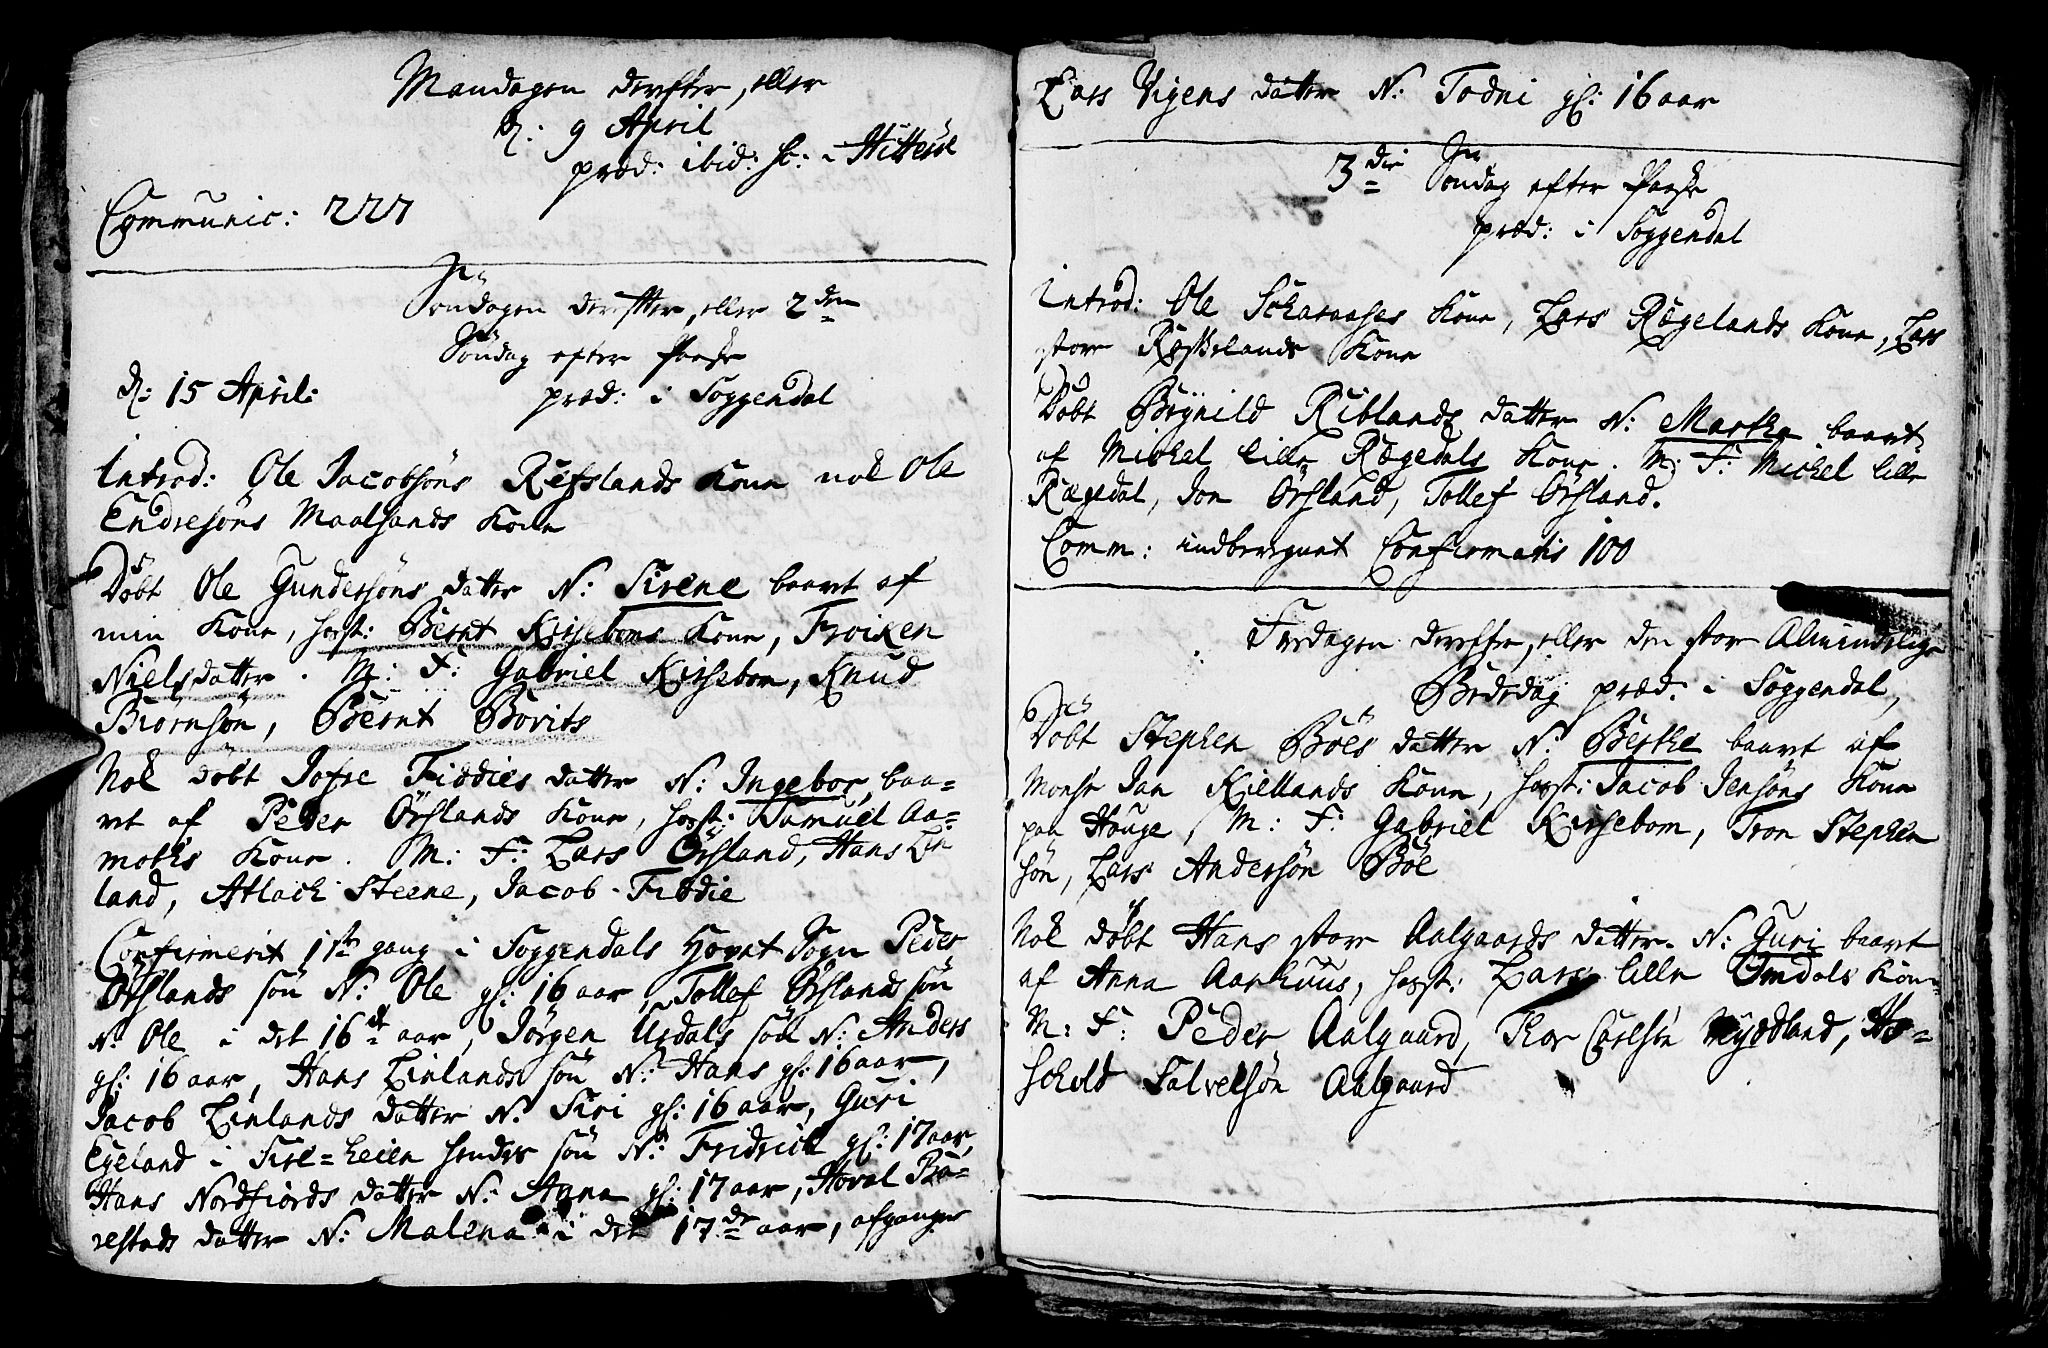 Mandagen derefter, eller
d: 9 April
præd: ibid: sc: i Hitterøe
Communic: 227
Søndagen derefter, eller 2den
Søndag efter Paaske
d: 15 April: præd: i Soggendal
Introd: Ole Jacobsöns Refslands Kone nok Ole
Endresöns Maalsands Kone
Döbt Ole Gundersöns datter N: Sirene baaret af
min Kone, hosst: Bernt Kirseboms Kone, Froiken
Nielsdatter. M: F: Gabriel Kirsebom, Knud
Biörnsön, Bernt Bovits
Nok döbt Jofre Fiddies datter N: Ingebor, baa-
ret af Peder Örslands Kone, hosst: Samuel Aa-
moths Kone. M: F: Lars Örsland, Hans Lin
land, Atlach Steene, Jacob Fiddie
Confirmerit 1ste gang i Soggendals Hovet Sogn Peder
Örslands sön N: Ole gl: 16 aar, Tollef Örslands sön
N: Ole i det 16de aar, Jörgen Urdals sön N: Anders
gl: 16 aar, Hans Linlands sön N: Hans gl: 16 aar,
Jacob Linlands datter N: Siri gl: 16 aar, Guri
Egeland i Sire-heien hendes sön N: Fridrich gl: 17 aar,
Hans Nordfiords datter N: Anna gl: 17 aar, Hoval Ba-
restads datter N: Malena i det 17de aar, afgangne
Lars Vigens datter N: Todni gl: 16 aar
3die Søndag efter Paaske
præd: i Soggendal
Introd: Ole Kone, Lars Rægelands Kone, Lars
store Kone
Döbt Brynild Riblands datter N: Martha baaret
af Michel lille Rægedals Kone. M: F: Michel lille
Rægedal, Jon Örsland, Tollef Örsland.
Comm: indberegnet Confirmatis 100
Fredagen derefter, eller den store Almindelige
Bededag præd: i Soggendal,
Döbt Stephen Böes datter N: Berthe baaret af
Monsr Jan Kiellands Kone, hosst: Jacob Jensöns Kone
paa Houge, M: F: Gabriel Kirsebom, Tron Stephen
sön, Lars Andersön Böe
Nok döbt Hans store Aalgaards datter N: Guri baaret
af Anna Aarhuus, hosst: Lars lille Omdals Kone
M: F: Peder Aalgaard, Thor Carlsön Myddland, He-
schold Salvelsön Aalgaard